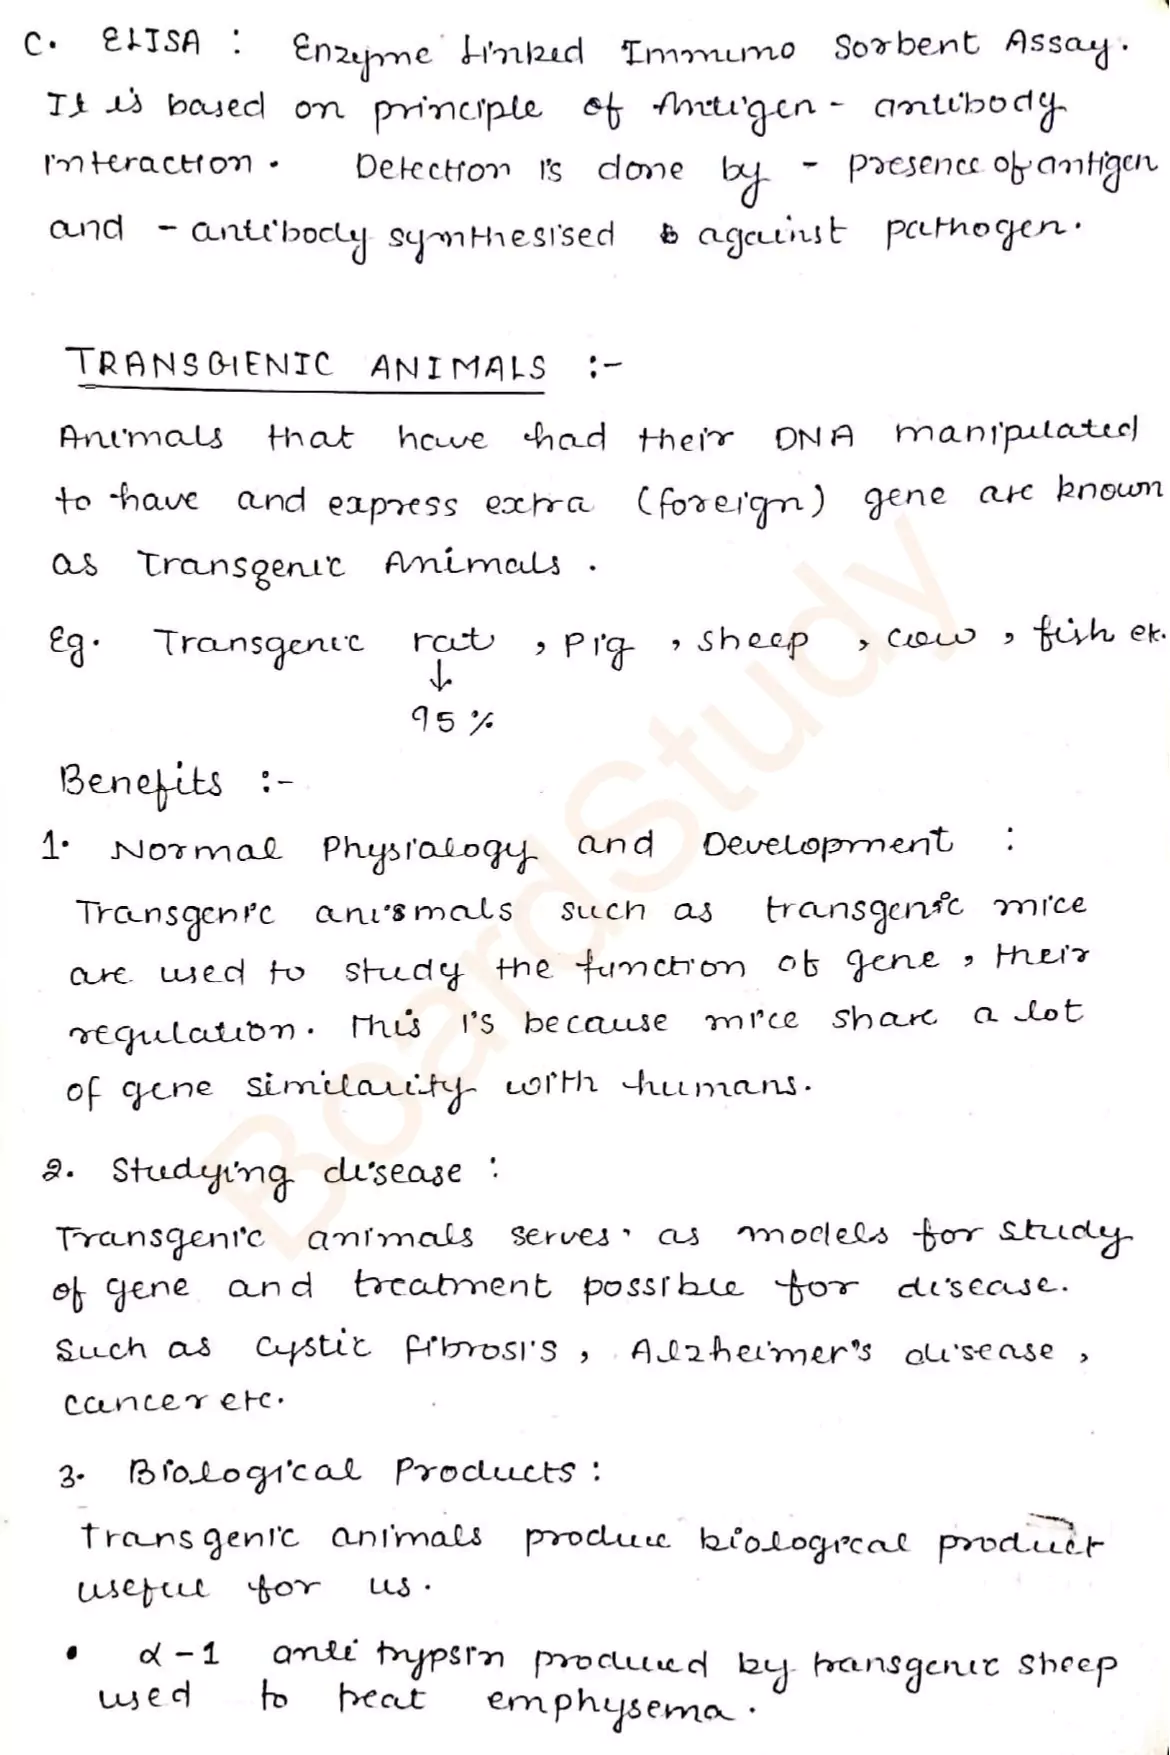 C. ELISA : Enzyme Linked Immuno Sorbent Assay.
It is based on principle of Antigen - antibody
interaction. Detection is done by - presence of antigen
and - antibody synthesised against pathogen.
TRANSGENIC ANIMALS :-
Animals that have had their DNA manipulated
to have and express extra (foreign) gene are known
as Transgenic Animals.
Eg. Transgenic rat, pig, sheep, cow, fish etc.
↓
95%
Benefits :-
1. Normal Physialogy and Development :
Transgenic anismals such as transgenic mice
are used to study the function of gene, their
regulation. This is because mice share a lot
of gene similarity with humans.
2. Studying disease :
Transgenic animals serves as models for study
of gene and treatment possible for disease.
Such as cystic fibrosis, Alzheimer's disease,
cancer etc.
3. Biological Products :
Transgenic animals produce biological product
useful for us.
• α-1 anti trypsin produced by transgenic sheep
used to treat emphysema.
BoardStudy